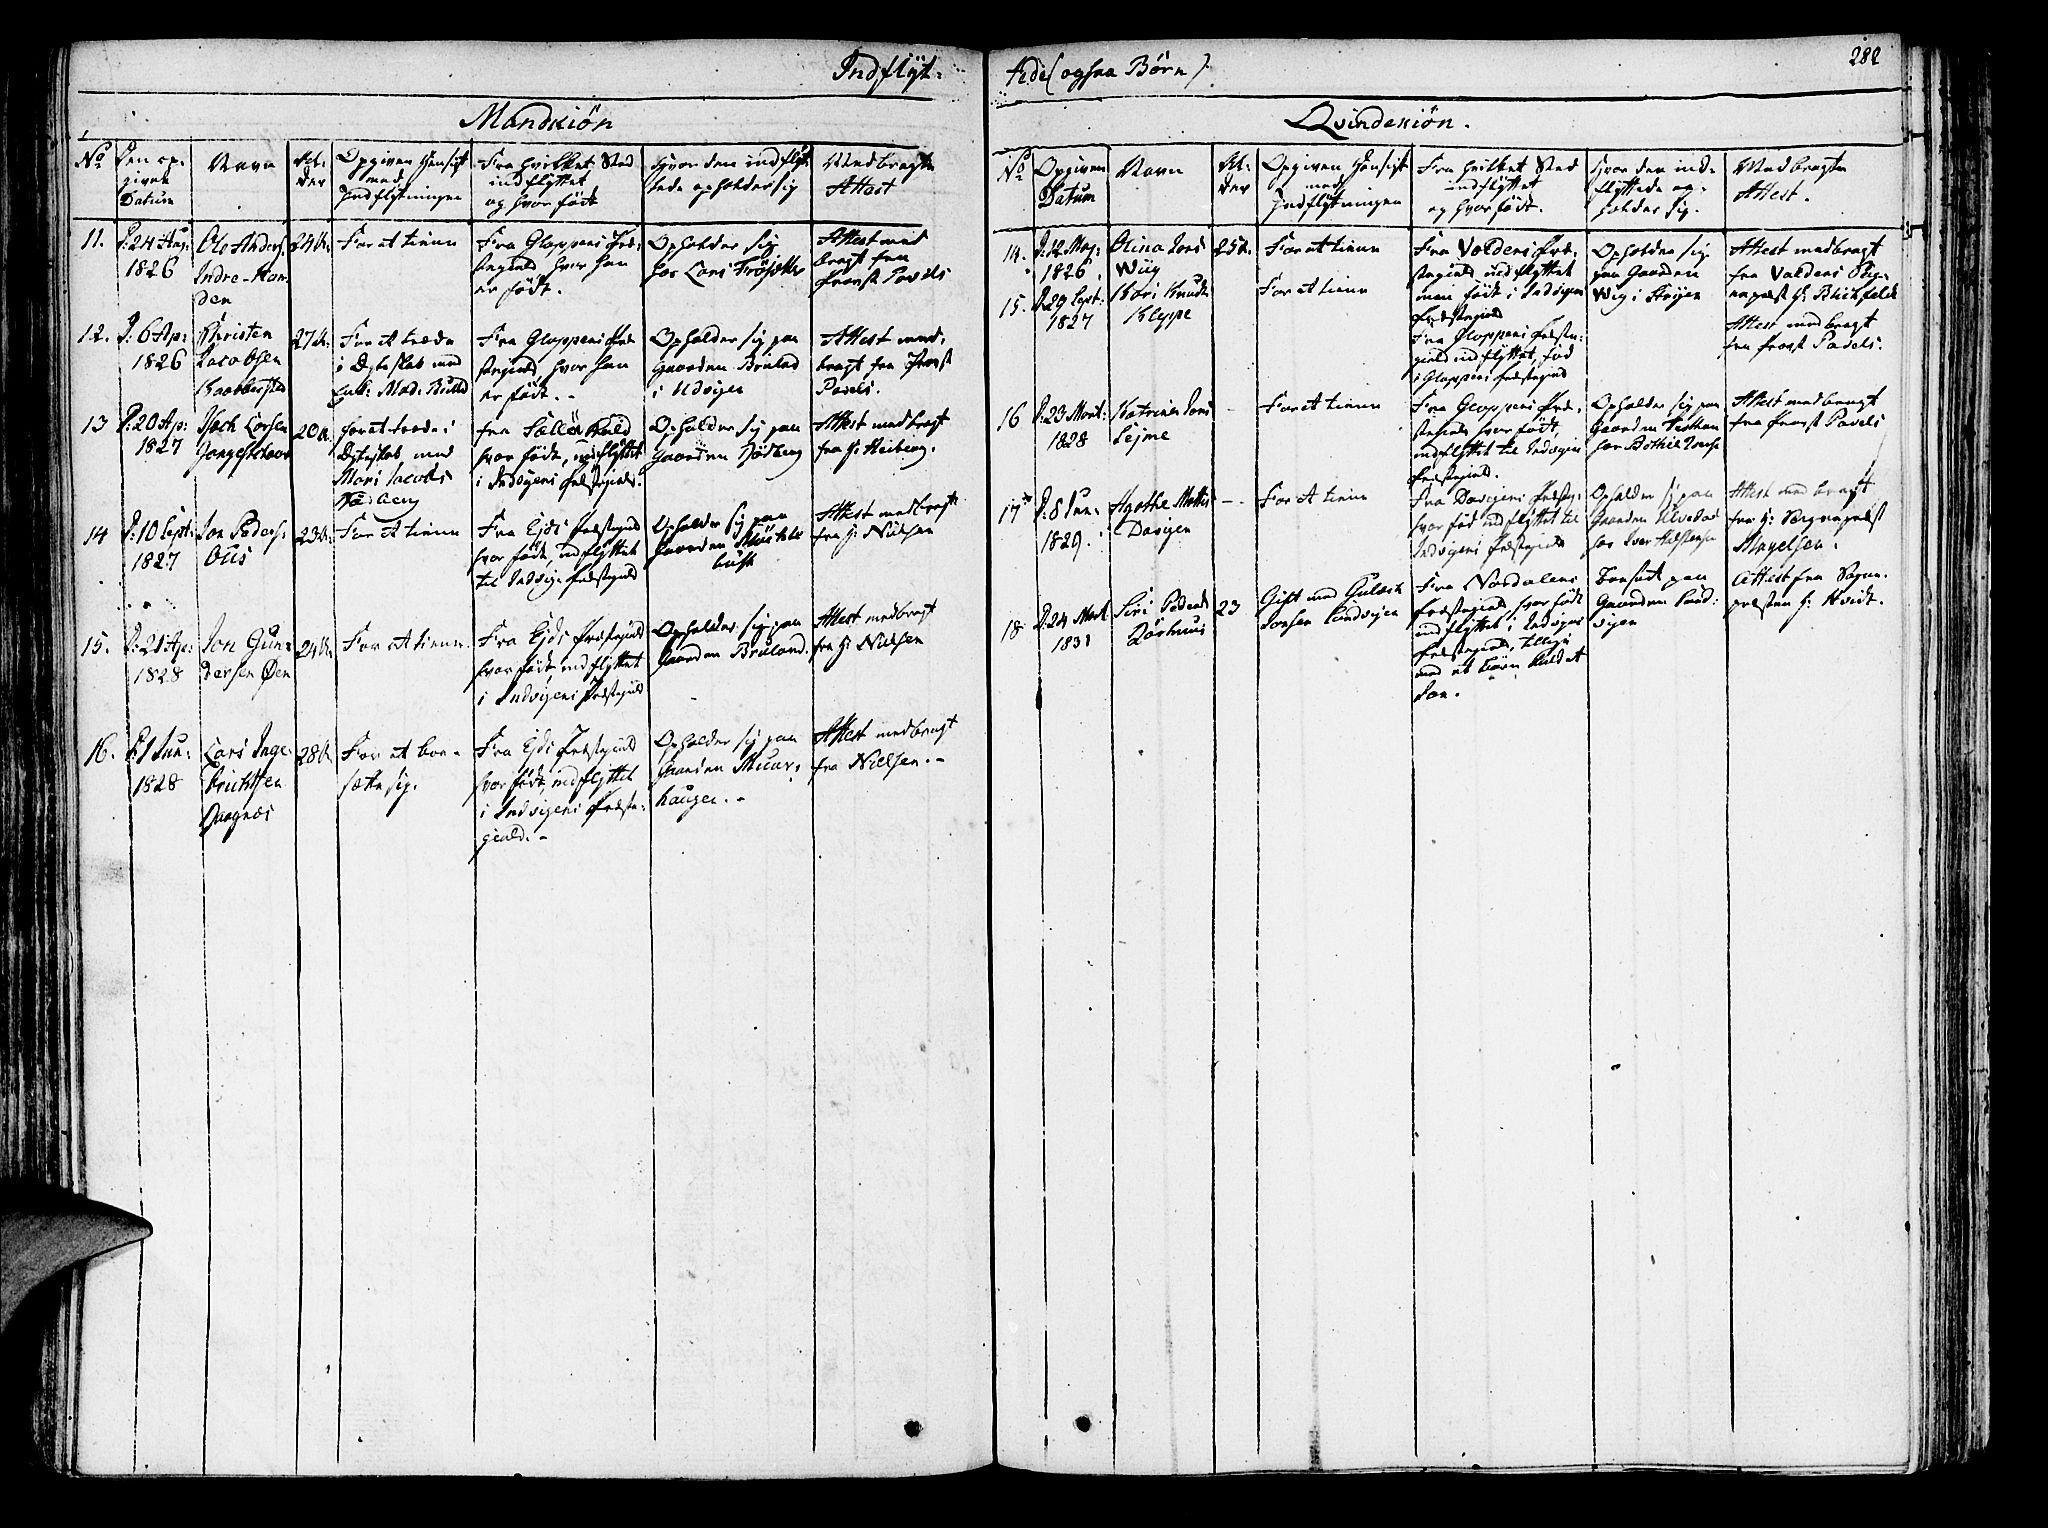 Indflyt-
tede (ogsaa Børn).
282
Mandkiøn
No
Den op-
given
Datum
Navn
Al-
der
Opgiven Hensigt
med
Indflytningen
Fra hvilket Sted
indflyttet
og hvor født
Hvor den indflyt-
tede opholder sig
Medbragte
Attest
11.
D: 24 Aug:
1826
Ole Anders:
Indre-
den
24 A.
For at tiene
Fra Gloppens Præ-
stegield, hvor han
er født.
Opholder sig
hos Lars
Attest med
bragt fra
Provst Pavels
12.
D: 6 Ap:
1826
Christen
Jacobsen
27 A.
For at træde
i Egteskab med
Enk: Mad:
Fra Gloppens Præ
stegield, hvor han
er født. -
Opholder sig paa
Gaarden Bruland
i Udvigen
Attest med-
bragt fra Provst
Pavels.
13
D: 20 Ap:
1827
Larsen
20 A.
for at træde i
Egteskab med
Mari Jacobs
Nødberg
fra
hvor født, indflyttet
i Indvigens Præstegield.
Opholder sig paa
Gaarden Nødberg
Attest medbragt
fra H: Heiberg.
14
D: 10 Sept:
1827
Jon Peders:
23 A.
For at tiene
Fra Ejds Præstegield
hvor født, indflyttet
til Indvigs Præstegield
Opholder sig paa
Gaarden
Attest medbragt
fra H: Nielsen
15.
D: 21 Ap:
1828
Jon Gun-
dersen Øen
24 A.
For at tiene.
Fra Ejds Præstegield
hvor født, indflyttet
i Indvigens Præstegield
Opholder sig paa
Gaarden Bruland.
Attest medbragt
fra H: Nielsen
16.
D: 1 Jun:
1828
Lars Inge-
brichtsen
28 A.
For at boe-
sætte sig.
Fra Ejds Præstegield
hvor født, indflyttet
i Indvigens Præste-
gield. -
Opholder sig paa
Gaarden Muur-
haugen. -
Attest medbragt
fra Nielsen. -
Qvindekiøn.
No
Opgiven
Datum
Navn
Al-
der
Opgiven Hensigt
med
Indflytningen
Fra hvilket Sted
indflyttet
og hvor født.
Hvor den ind-
flyttede op-
holder sig.
Medbragte
Attest.
14.
D: 12 May:
1826.
Olina Jons
Wiig
25 A.
For at tiene
Fra Voldens Præ-
stegield indflyttet
men født i Indvigens
Præstegield
Opholder sig
paa Gaarden
Wig i Stryen
Attest medbragt
fra Voldens Sog-
nepræst H: Blichfeldt
15.
D. 29 Sept:
1827
Kari Knuds
Kleppe
For at tiene
Fra Gloppens Præste-
gield indflyttet, fød
i Gloppens Præstegield
Attest medbragt
fra Provst Pavels.
16
D: 23 Mart:
1828
Katrine Jons
Sejme
-
For at tiene
Fra Gloppens Præ-
stegield hvor født,
indflyttet til Indvigens
Præstegield.
Opholder sig paa
Gaarden
hos
Attest medbragt
fra Provst Pavels
17
D: 8 Jun:
1829.
Agathe
Davigen
-
For at tiene
Fra Davigens Præsteg:
hvor fød indflyttet til
Indvigens Præstegield
Opholder sig paa
Gaarden
hos Iver
Attest medbragt
fra H: Sognepræst
Magelsen.
18
D: 24 Mart
1831
Siri Peders
23
Gift med
Jonsen Sandvigen
Fra Nordalens
Præstegield, hvor født
indflyttet i Indvigens
Præstegield, tilligemed
med et Barn kaldet
Jon.
Bonsat paa
Gaarden Sand-
vigen
Attest fra Sogne-
præsten H: Hvidt.